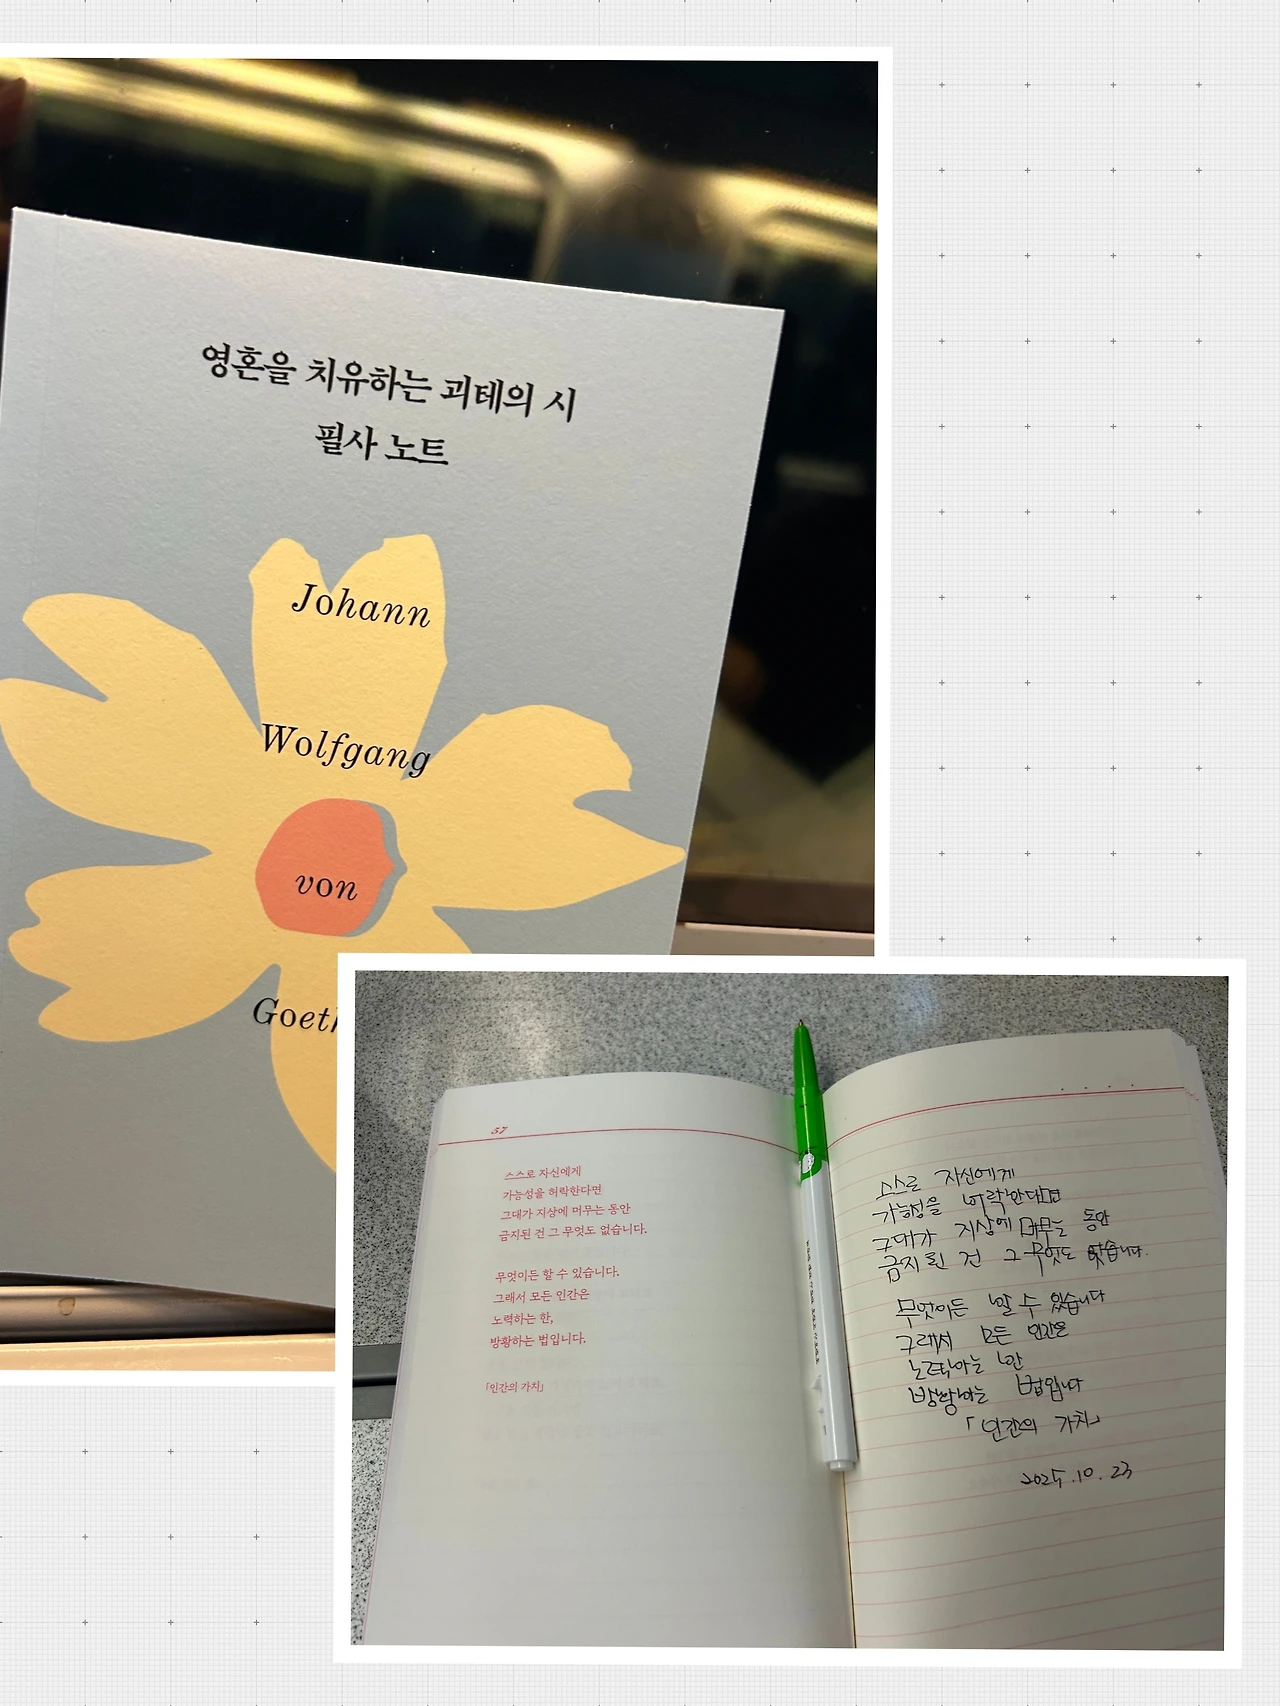 영혼을 치유하는 괴테의 시
필사 노트
Johann
Wolfgang
von
Goeth
57
스스로 자신에게
가능성을 허락한다면
그대가 지상에 머무는 동안
금지된 건 그 무엇도 없습니다.
무엇이든 할 수 있습니다.
그래서 모든 인간은
노력하는 한,
방황하는 법입니다.
「인간의 가치」
스스로 자신에게
가능성을 허락한다면
그대가 지상에 머무는 동안
금지된 건 그 무엇도 없습니다.
무엇이든 할 수 있습니다
그래서 모든 인간은
노력하는 한
방황하는 법입니다
「인간의 가치」
2025.10.23